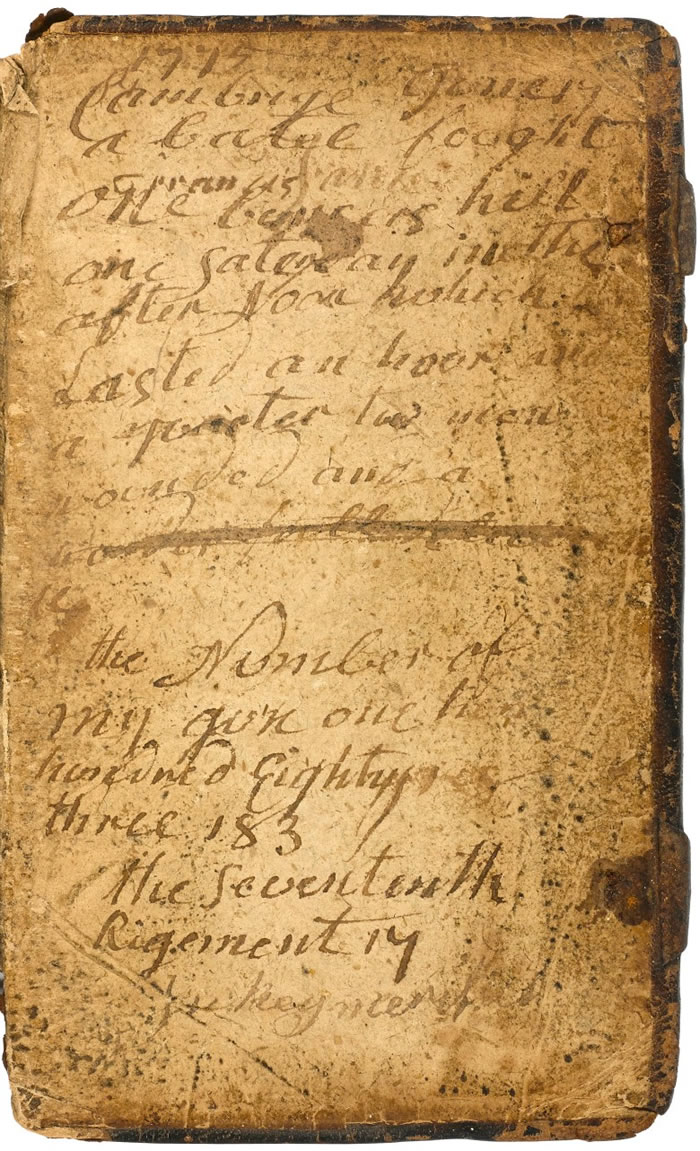 1775
Cambrige
a batel fooght
Francis
one buncers hill
one Saterday in the
after Noon which
Lasted an hoor and
a quorter two men
wounded and a
the Number of
my gon one
hundred Eighty
three 183
the sevententh
Rigement 17